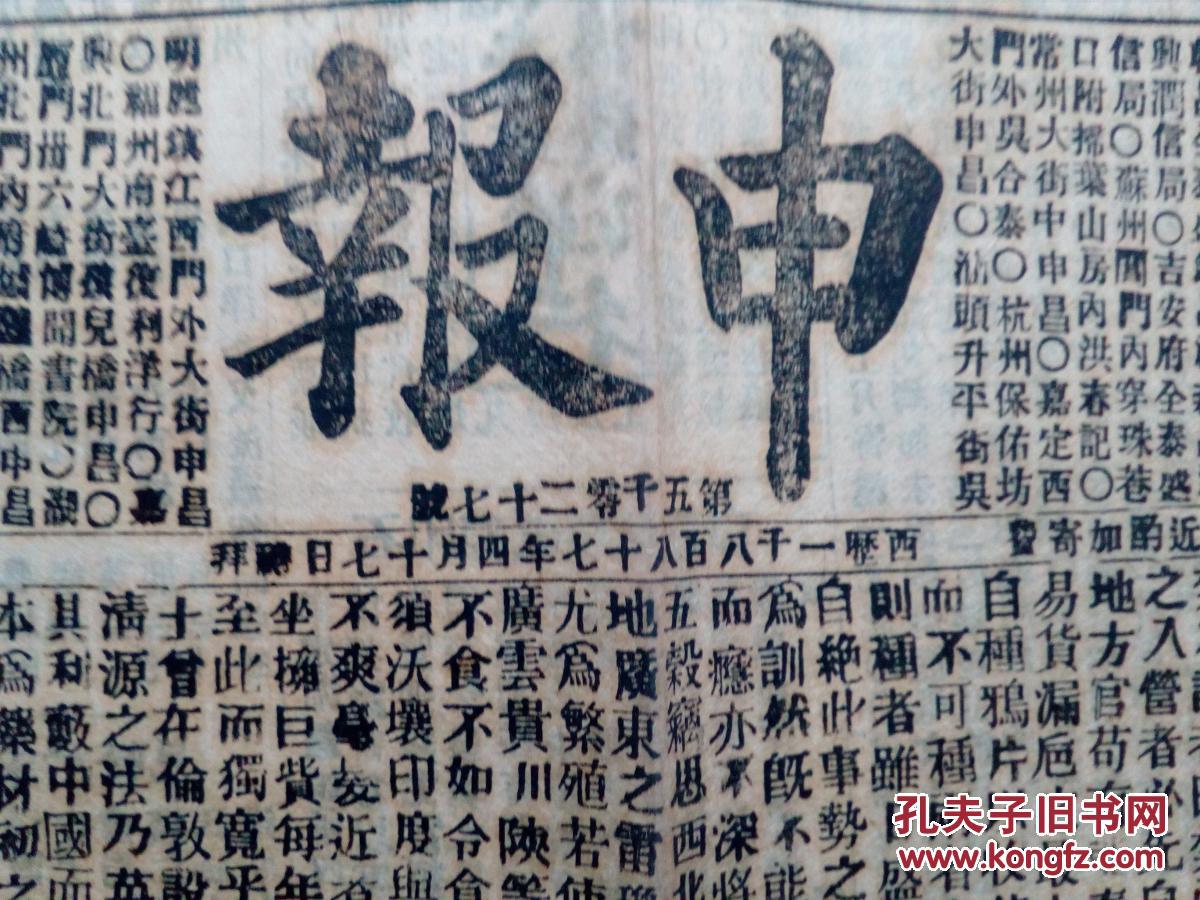 申報
第五千零二十七號
西歷一千八百八十七年四月十七日禮拜
近酌加寄資
興潤信局〇吉安府全泰盛
信局〇蘇州閶門內穿珠巷
口附掃葉山房內洪春記〇
常州大街中申昌〇嘉定西
門外吳合泰〇杭州保佑坊
大街申昌〇汕頭升平街吳
明勝鎮江西門外大街申昌
〇福州南臺復利洋行〇嘉
興北門大街獲兒橋申昌〇
之入營者必
地方官苟
易貨漏卮
自種鴉片
而不可種
則種者雖
自絕此事勢之
為訓然既不能
而癮亦不深將
五穀竊恐西北
地廣東之雷瓊
尤為繁殖若使
廣雲貴川陝等
不食不如令食
須沃壤印度與
不爽
坐擁巨貲每年
至此而獨寬乎
十曾在倫敦設
清源之法乃英
其利藪中國而
本為藥材初之
孔夫子旧书网
www.kongfz.com